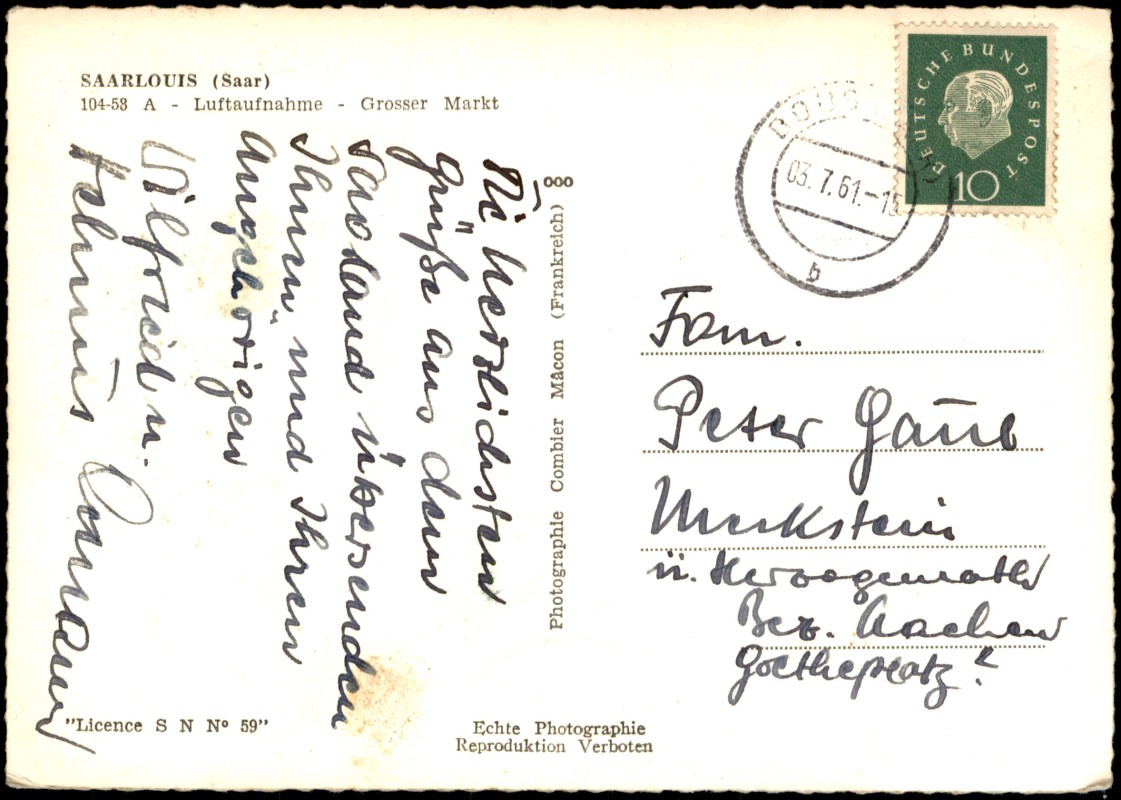 SAARLOUIS (Saar)
104-58 A - Luftaufnahme - Grosser Markt
Die herzlichsten
Grüße aus dem
Saarland übersenden
Ihnen und Ihren
Angehörigen
Wilfried u.
Helmut
ooo
Photographie Combier Mâcon (Frankreich)
"Licence S N N° 59"
Echte Photographie
Reproduktion Verboten
DEUTSCHE BUNDESPOST
10
BOUS
03.7.61.-15
b
Fam.
Peter Gaub
Merkstein
ü. Herzogenrath
Bez. Aachen
Goetheplatz